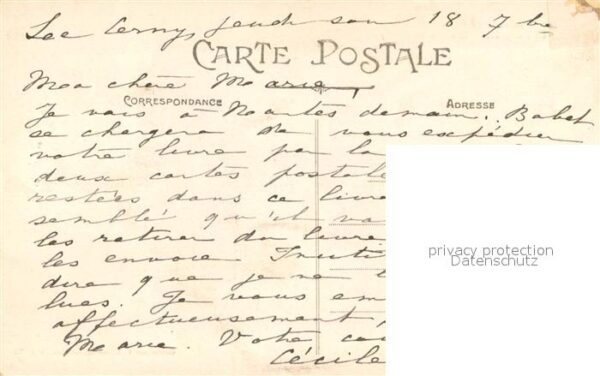 jeudi soir 18 7bre
CARTE POSTALE
Ma chère Marie,
CORRESPONDANCE
ADRESSE
Je vais à Nantes demain. Babet
se chargera de vous expédier
votre livre par la
deux cartes postales
restées dans ce livre
semblé qu'il
les retirer du livre
les envoie
dire que je ne
lues. Je vous em
affectueusement,
Marie. Votre
Cécile
privacy protection
Datenschutz